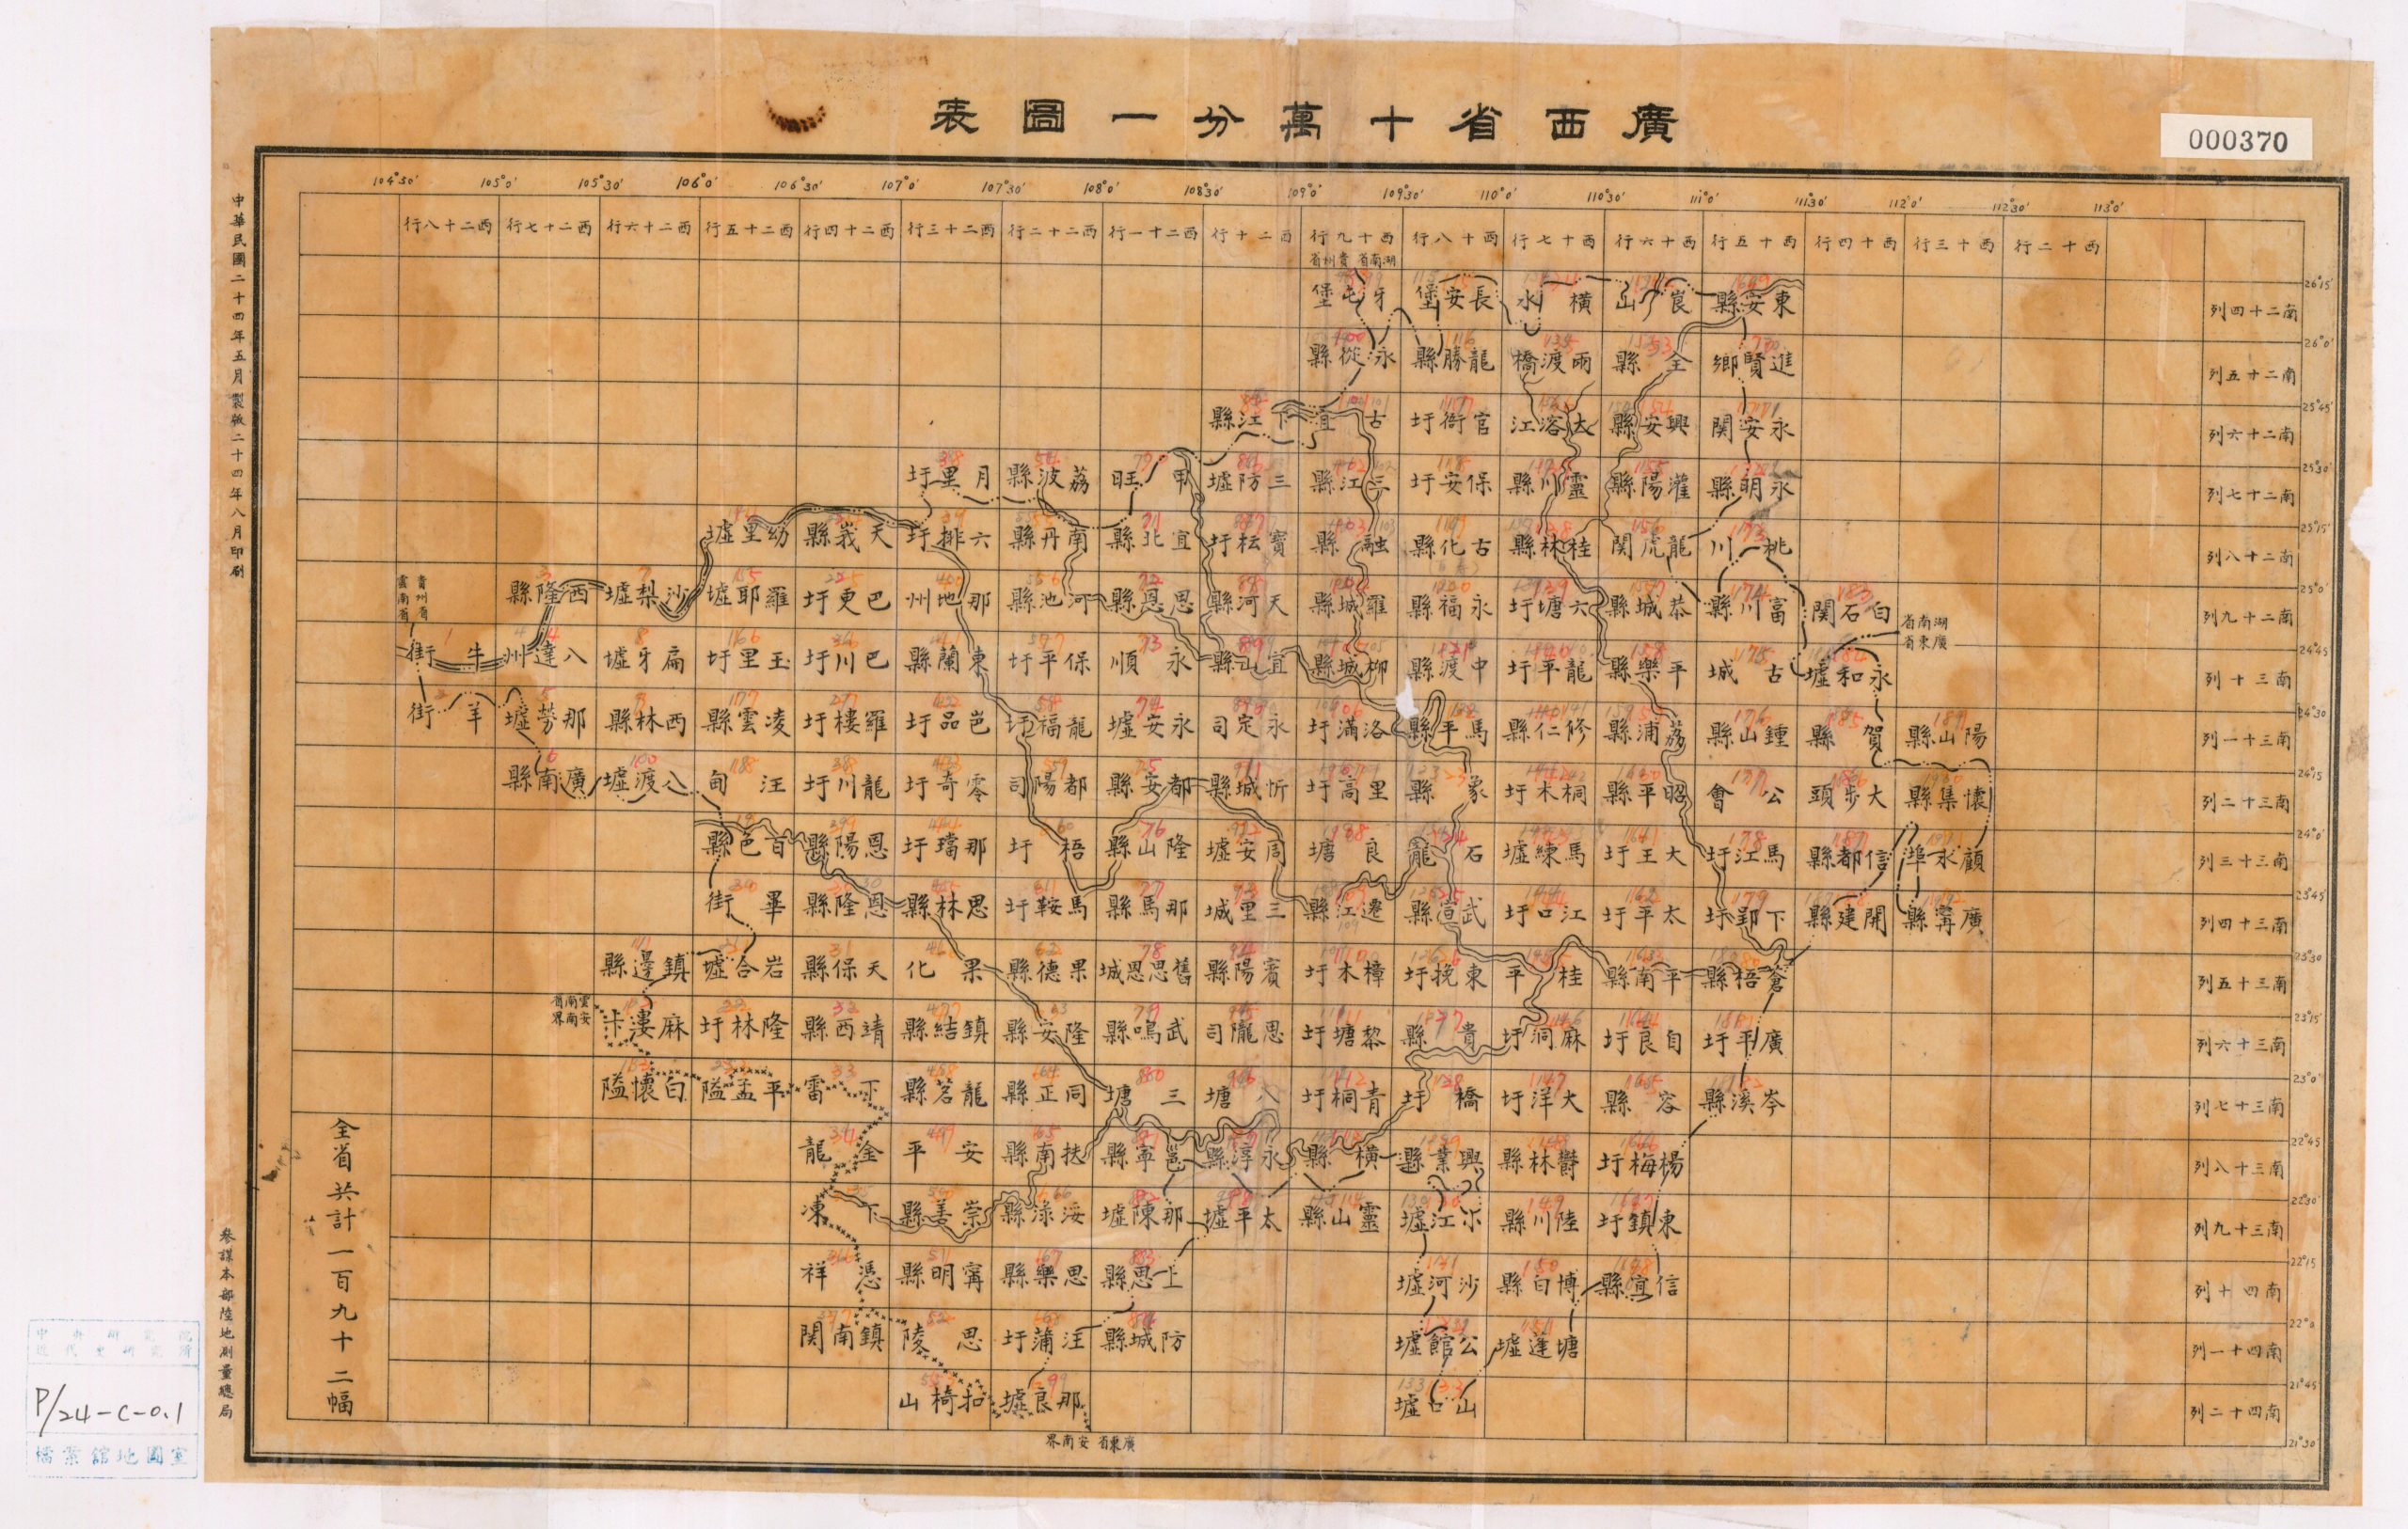 廣西省十萬分一圖表
000370
104°30′ 105°0′ 105°30′ 106°0′ 106°30′ 107°0′ 107°30′ 108°0′ 108°30′ 109°0′ 109°30′ 110°0′ 110°30′ 111°0′ 111°30′ 112°0′ 112°30′ 113°0′
西十二行 西十三行 西十四行 西十五行 西十六行 西十七行 西十八行 西十九行 西二十行 西二十一行 西二十二行 西二十三行 西二十四行 西二十五行 西二十六行 西二十七行 西二十八行
湖南省 貴州省
26°15′
南二十四列 東安縣 崀山 橫水 長安堡 牙屯堡
26°0′
南二十五列 進賢鄉 全縣 兩渡橋 龍勝縣 永從縣
25°45′
南二十六列 永安関 興安縣 大溶江 官衙圩 古宜 下江縣
25°30′
南二十七列 永明縣 灌陽縣 靈川縣 保安圩 三江縣 三防墟 甲旺 荔波縣 月里圩
25°15′
南二十八列 桃川 龍虎関 桂林縣 古化縣 融縣 寶耘圩 宜北縣 南丹縣 六排圩 天峩縣 幼里墟
25°0′
南二十九列 白石関 富川縣 恭城縣 六塘圩 永福縣 羅城縣 天河縣 思恩縣 河池縣 那地州 巴更圩 羅耶墟 沙梨墟 西隆縣
貴州省
雲南省
湖南省
廣東省
24°45′
南三十列 永和墟 古城 平樂縣 龍平圩 中渡縣 柳城縣 宜山縣 永順 保平圩 東蘭縣 巴川圩 玉里圩 扁牙墟 八達州 牛街
24°30′
南三十一列 陽山縣 賀縣 鍾山縣 荔浦縣 修仁縣 馬平縣 洛滿圩 永定司 永安墟 龍福圩 邑品圩 羅樓圩 凌雲縣 西林縣 那勞墟 羊街
24°15′
南三十二列 懷集縣 大步頭 公會 昭平縣 桐木圩 象縣 里高圩 忻城縣 都安縣 都陽司 零奇圩 龍川圩 汪甸 八渡墟 廣南縣
24°0′
南三十三列 顧水埠 信都縣 馬江圩 大王圩 馬練墟 石龍 良塘 周安墟 隆山縣 梧圩 那璫圩 恩陽縣 百色縣
23°45′
南三十四列 廣寧縣 開建縣 下郢圩 太平圩 江口圩 武宣縣 遷江縣 三里城 那馬縣 馬鞍圩 思林縣 恩隆縣 畢街
23°30′
南三十五列 蒼梧縣 平南縣 桂平 東挽圩 樟木圩 賓陽縣 舊思恩城 果德縣 果化 天保縣 岩合墟 鎮邊縣
雲南省
安南界
23°15′
南三十六列 廣平圩 自良圩 麻洞圩 貴縣 黎塘圩 思隴司 武鳴縣 隆安縣 鎮結縣 靖西縣 隆林圩 麻漊卡
23°0′
南三十七列 岑溪縣 容縣 大洋圩 橋圩 青桐圩 八塘 三塘 同正縣 龍茗縣 下雷 平孟隘 白懷隘
22°45′
南三十八列 楊梅圩 鬱林縣 興業縣 橫縣 永淳縣 邕寧縣 扶南縣 安平 金龍
22°30′
南三十九列 東鎮圩 陸川縣 小江墟 靈山縣 太平墟 那陳墟 綏淥縣 崇善縣 下凍
22°15′
南四十列 信宜縣 博白縣 沙河墟 上思縣 思樂縣 寧明縣 憑祥
22°0′
南四十一列 塘蓬墟 公館墟 防城縣 汪蒲圩 思陵 鎮南関
21°45′
南四十二列 山口墟 那良墟 扣椅山
21°30′
廣東省 安南界
全省共計一百九十二幅
中華民國二十四年五月製版二十四年八月印刷
參謀本部陸地測量總局
中央研究院
近代史研究所
P/24-C-0.1
檔案館地圖室